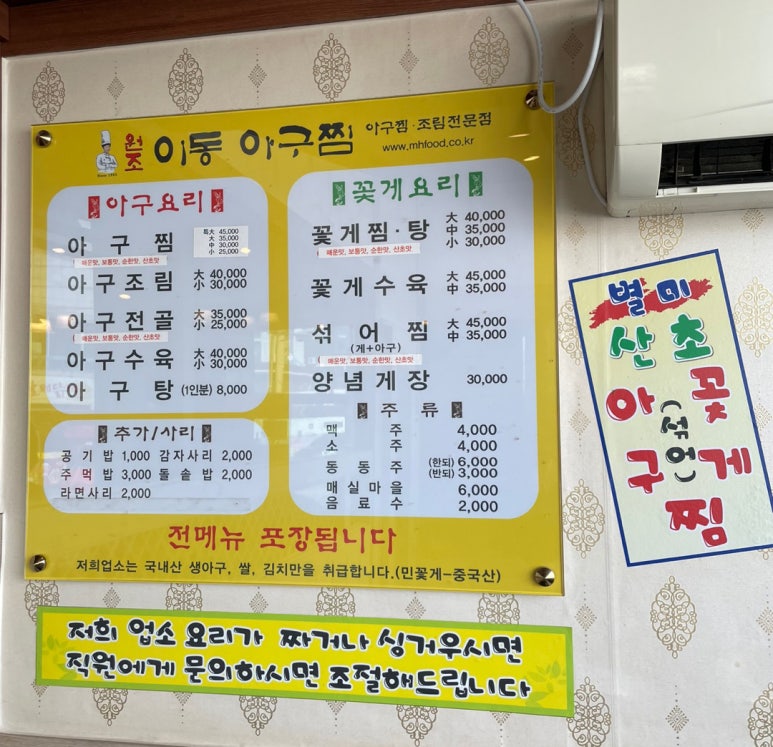 원조 이동 아구찜 아구찜·조림전문점
Since 1995
www.mhfood.co.kr
아구요리
아구찜 特大 45,000
大 35,000
中 30,000
小 25,000
매운맛, 보통맛, 순한맛, 산초맛
아구조림 大 40,000
小 30,000
아구전골 大 35,000
小 25,000
매운맛, 보통맛, 순한맛, 산초맛
아구수육 大 40,000
小 30,000
아구탕 (1인분) 8,000
추가/사리
공기밥 1,000 감자사리 2,000
주먹밥 3,000 돌솥밥 2,000
라면사리 2,000
꽃게요리
꽃게찜·탕 大 40,000
中 35,000
小 30,000
매운맛, 보통맛, 순한맛, 산초맛
꽃게수육 大 45,000
中 35,000
섞어찜 大 45,000
(게+아구) 中 35,000
매운맛, 보통맛, 순한맛, 산초맛
양념게장 30,000
주류
맥주 4,000
소주 4,000
동동주 (한되) 6,000
(반되) 3,000
매실마을 6,000
음료수 2,000
전메뉴 포장됩니다
저희업소는 국내산 생아구, 쌀, 김치만을 취급합니다.(민꽃게-중국산)
저희 업소 요리가 짜거나 싱거우시면
직원에게 문의하시면 조절해드립니다
별미
산초
아구
(섞어)
꽃게
찜